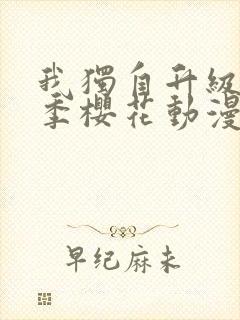 我獨自升級
季櫻花動漫
早纪麻未